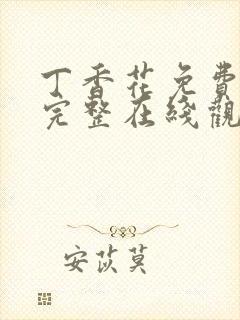 丁香花免费
完整在綫觀
安苡莫